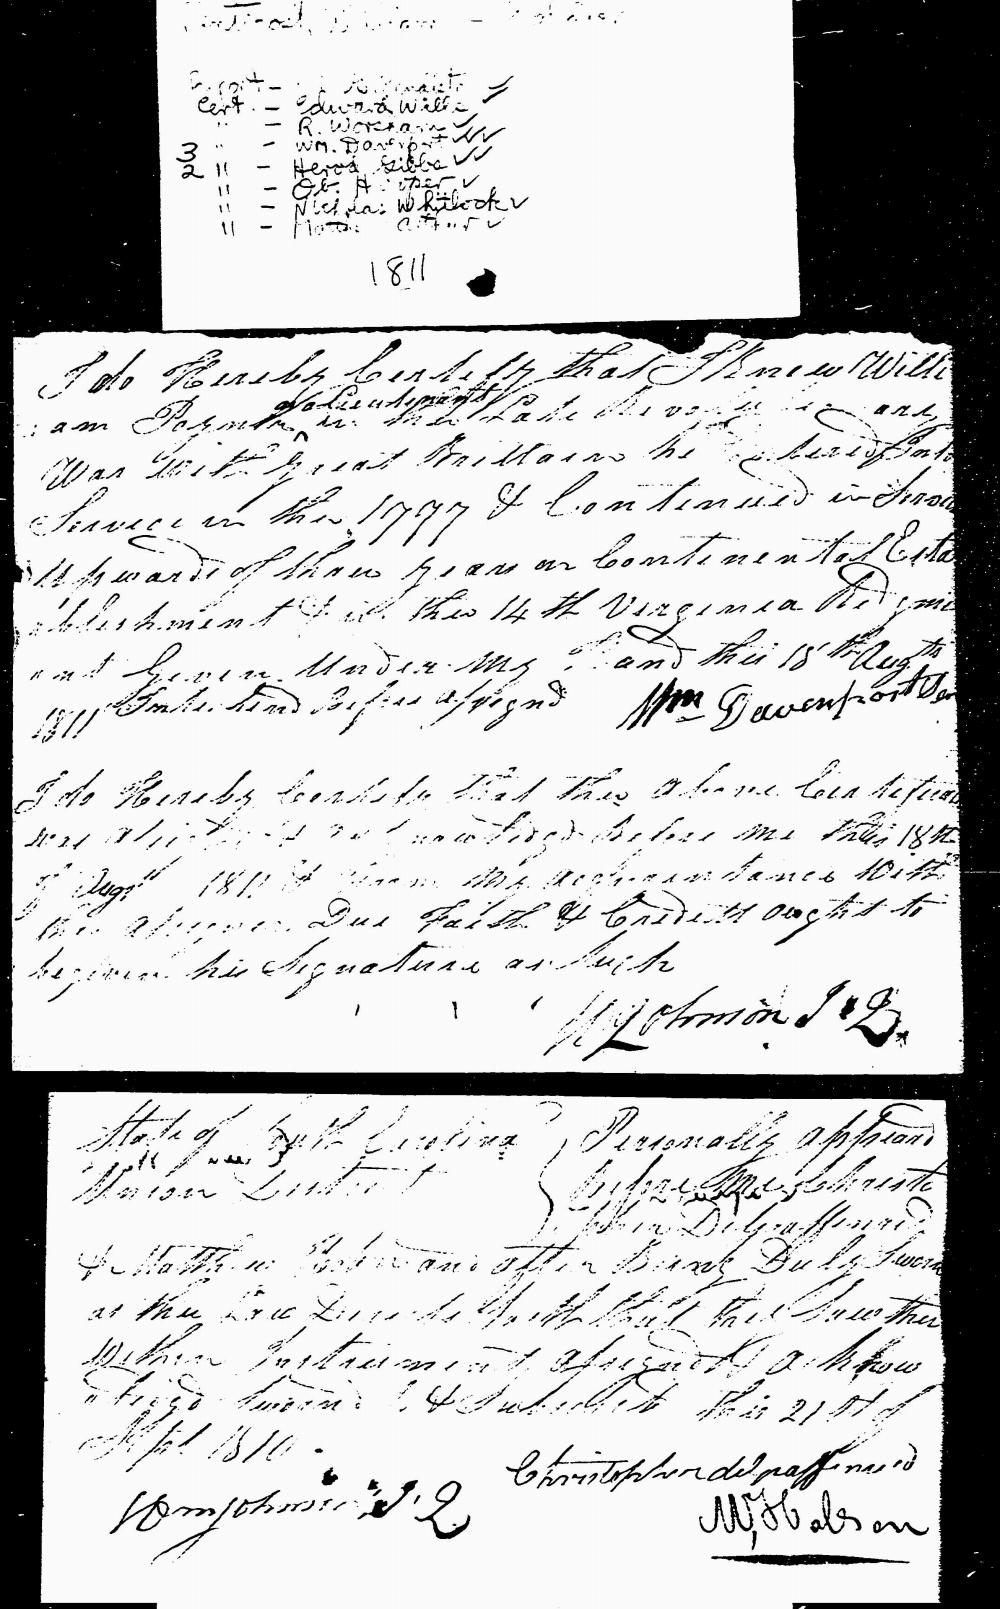 Cert. - Edward Wills ✓
" - R. Worsham ✓
3 " - Wm. Davenport ✓✓
2 " - Herod Gibbs ✓✓
" - Ob. Hooper ✓
" - Nicholas Whitlock ✓
" - Arthur ✓
1811
I do Hereby Certefy that I Knew Willi
:am
a Lieutenant
in the Late Revolutionary
War With Great Brittain he Entered Into
Service in the 1777 & Continued in Servi
Upwards of three years on Continental Esta
ablishment & in the 14th Virginia Redgme
ent Given Under My Hand this 18th Augth
1811 Interlined Before assignd Wm Davenport Sen
I do Hereby Certefy that the Above Certeficate
was & acknowledgd Before Me this 18th
of Augst 1811 & from My acquaintance With
the assigner Due Faith & Creditt ought to
be given his Signature as Such
Johnson J. Q.
State of South Carolina } Personally appeard
Union District } before Me Christo
pher Degraffenreid
& Matthew Hobson and after Being Duly Sworn
as the Law Directs Saith that they Saw the
Within Instrument assignd & acknow
ledgd Sworn to & Subscribd this 21st of
Sept 1811
Christopher degraffenreid
Wm Johnson J. Q.
M. Hobson